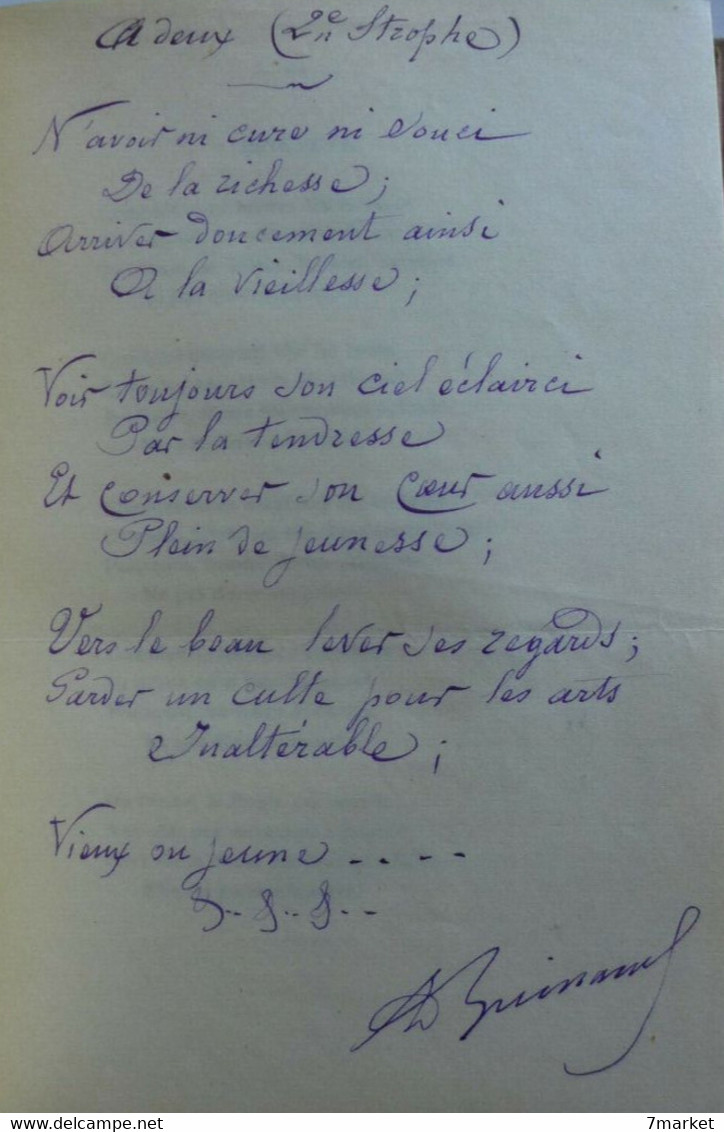 A deux (2e Strophe)
N'avoir ni cure ni souci
De la richesse;
Arriver doucement ainsi
A la vieillesse;
Voir toujours son ciel éclairci
Par la tendresse
Et conserver son cœur aussi
Plein de jeunesse;
Vers le beau lever ses regards;
Garder un culte pour les arts
Inaltérable;
Vieux ou jeune .....
delcampe.net
7market